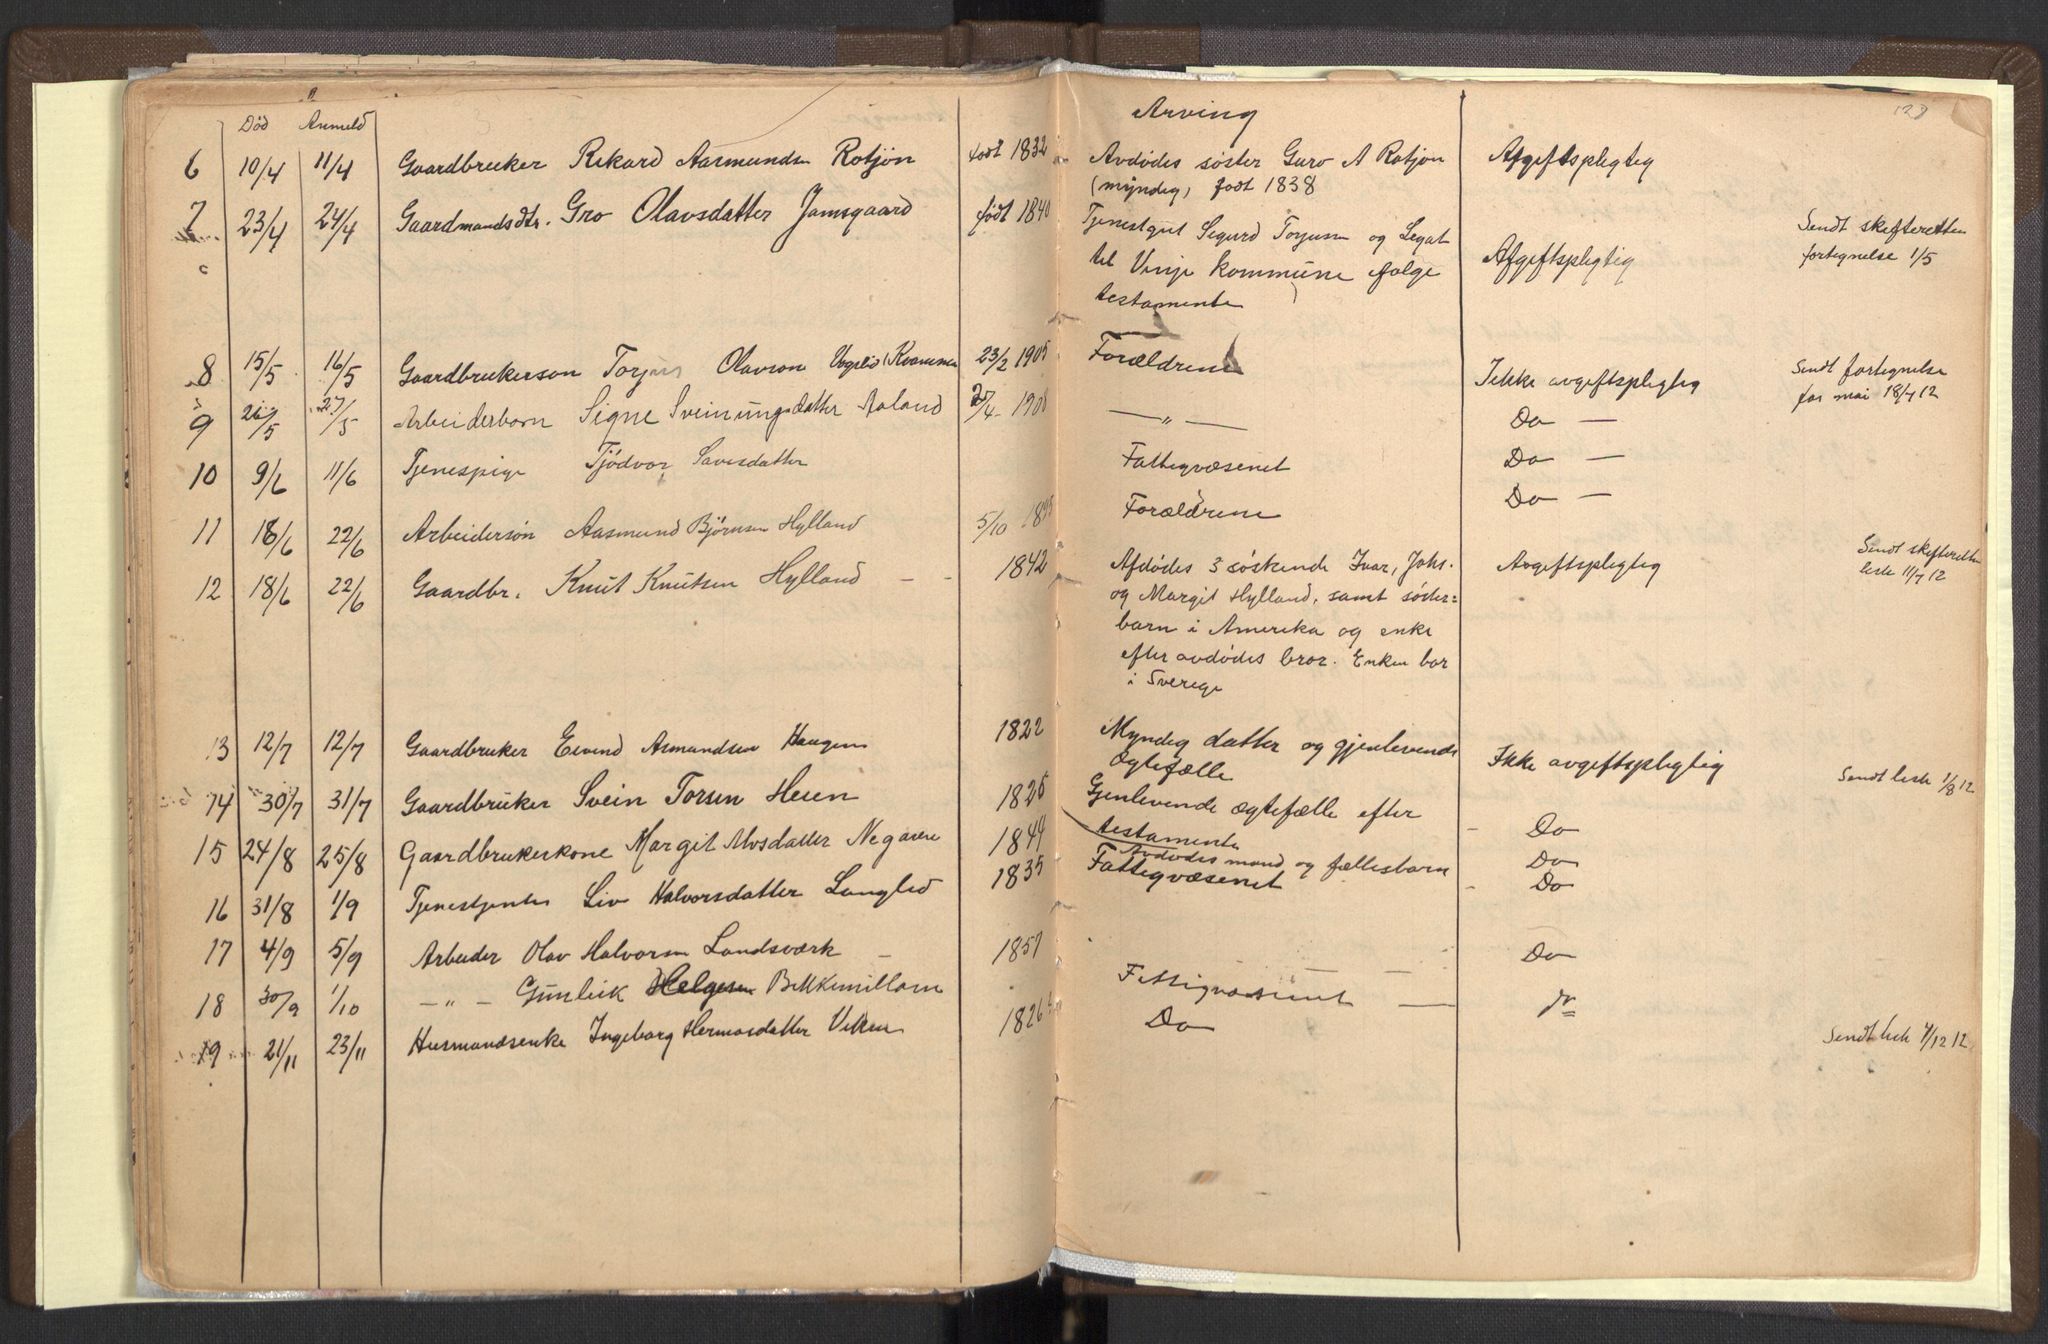 Arving
128
Død Anmeld
6 10/4 11/4 Gaardbruker Rikard Aasmundsen Rotjøn født 1832 Avdødes søster Guro A Rotjøn Afgiftspligtig
(myndig) født 1838
7 23/4 24/4 Gaardmandsdtr. Gro Olavsdatter Jamsgaard født 1840 Tjenestgut Sigurd Torjusen og Legat Sendt skifteretten
til Vinje kommune ifølge Afgiftspligtig fortegnelse 1/5
testamente
8 15/5 16/5 Gaardbrukersøn Torjus Olavson Kvammen 23/2 1905 Forældrene Ikke avgiftspligtig Sendt fortegnelse
for mai 18/7 12
9 26/5 27/5 Arbeiderbarn Signe Sveinungsdatter Aaland 1908 — " — Do —
10 9/6 11/6 Tjenespige Tjødvor Fattigvæsenet Do —
11 18/6 22/6 Arbeidersøn Aasmund Bjørnsen Hylland 5/10 Forældrene Do —
12 18/6 22/6 Gaardbr. Knut Knutsen Hylland - - 1842 Afdødes 3 søskende Ivar, Johs. Avgiftspligtig Sendt skifteretten
og Margit Hylland, samt søster= liste 11/7 12
barn i Amerika og enke
efter avdødes bror. Enken bor
i Sverige
13 12/7 12/7 Gaardbruker Eivind Asmundsen Haugen 1822 Myndig datter og gjenlevende Ikke avgiftspligtig
Ægtefælle
14 30/7 31/7 Gaardbruker Svein Torsen Heien 1825 Gjenlevende ægtefælle efter - Do Sendt liste 1/8 12
testamente
15 24/8 25/8 Gaardbrukerkone Margit Negaren 1844 Avdødes mand og fællesbarn Do
16 31/8 1/9 Tjenestjente Liv Halvorsdatter Langlid 1835 Fattigvæsenet - Do
17 4/9 5/9 Arbeider Olav Halvorsen Landsværk - 1857 — — — Do
18 30/9 1/10 — " — Gunleik Helgesen Bekkemillom Fattigvæsenet —
19 21/11 23/11 Husmandsenke Ingeborg Hermosdatter Viken 1826 Do Sendt liste 7/12 12